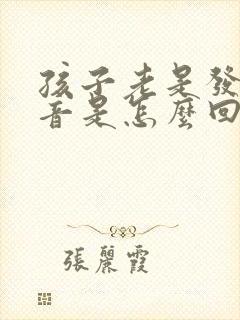 孩子老是發
音是怎麼回
張麗霞